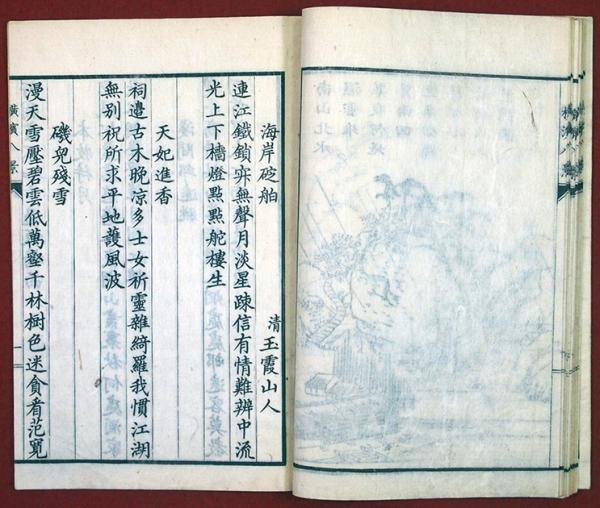 海岸碇舶
清 玉霞山人
連江鐵鎖寂無聲月淡星疎信有情難辨中流
光上下檣燈點點舵樓生
天妃進香
祠邉古木晚涼多士女祈靈雜綺羅我慣江湖
無别祝所求平地護風波
磯兒殘雪
漫天雪壓碧雲低萬壑千林樹色迷貪看范寬
橫濱八景
一